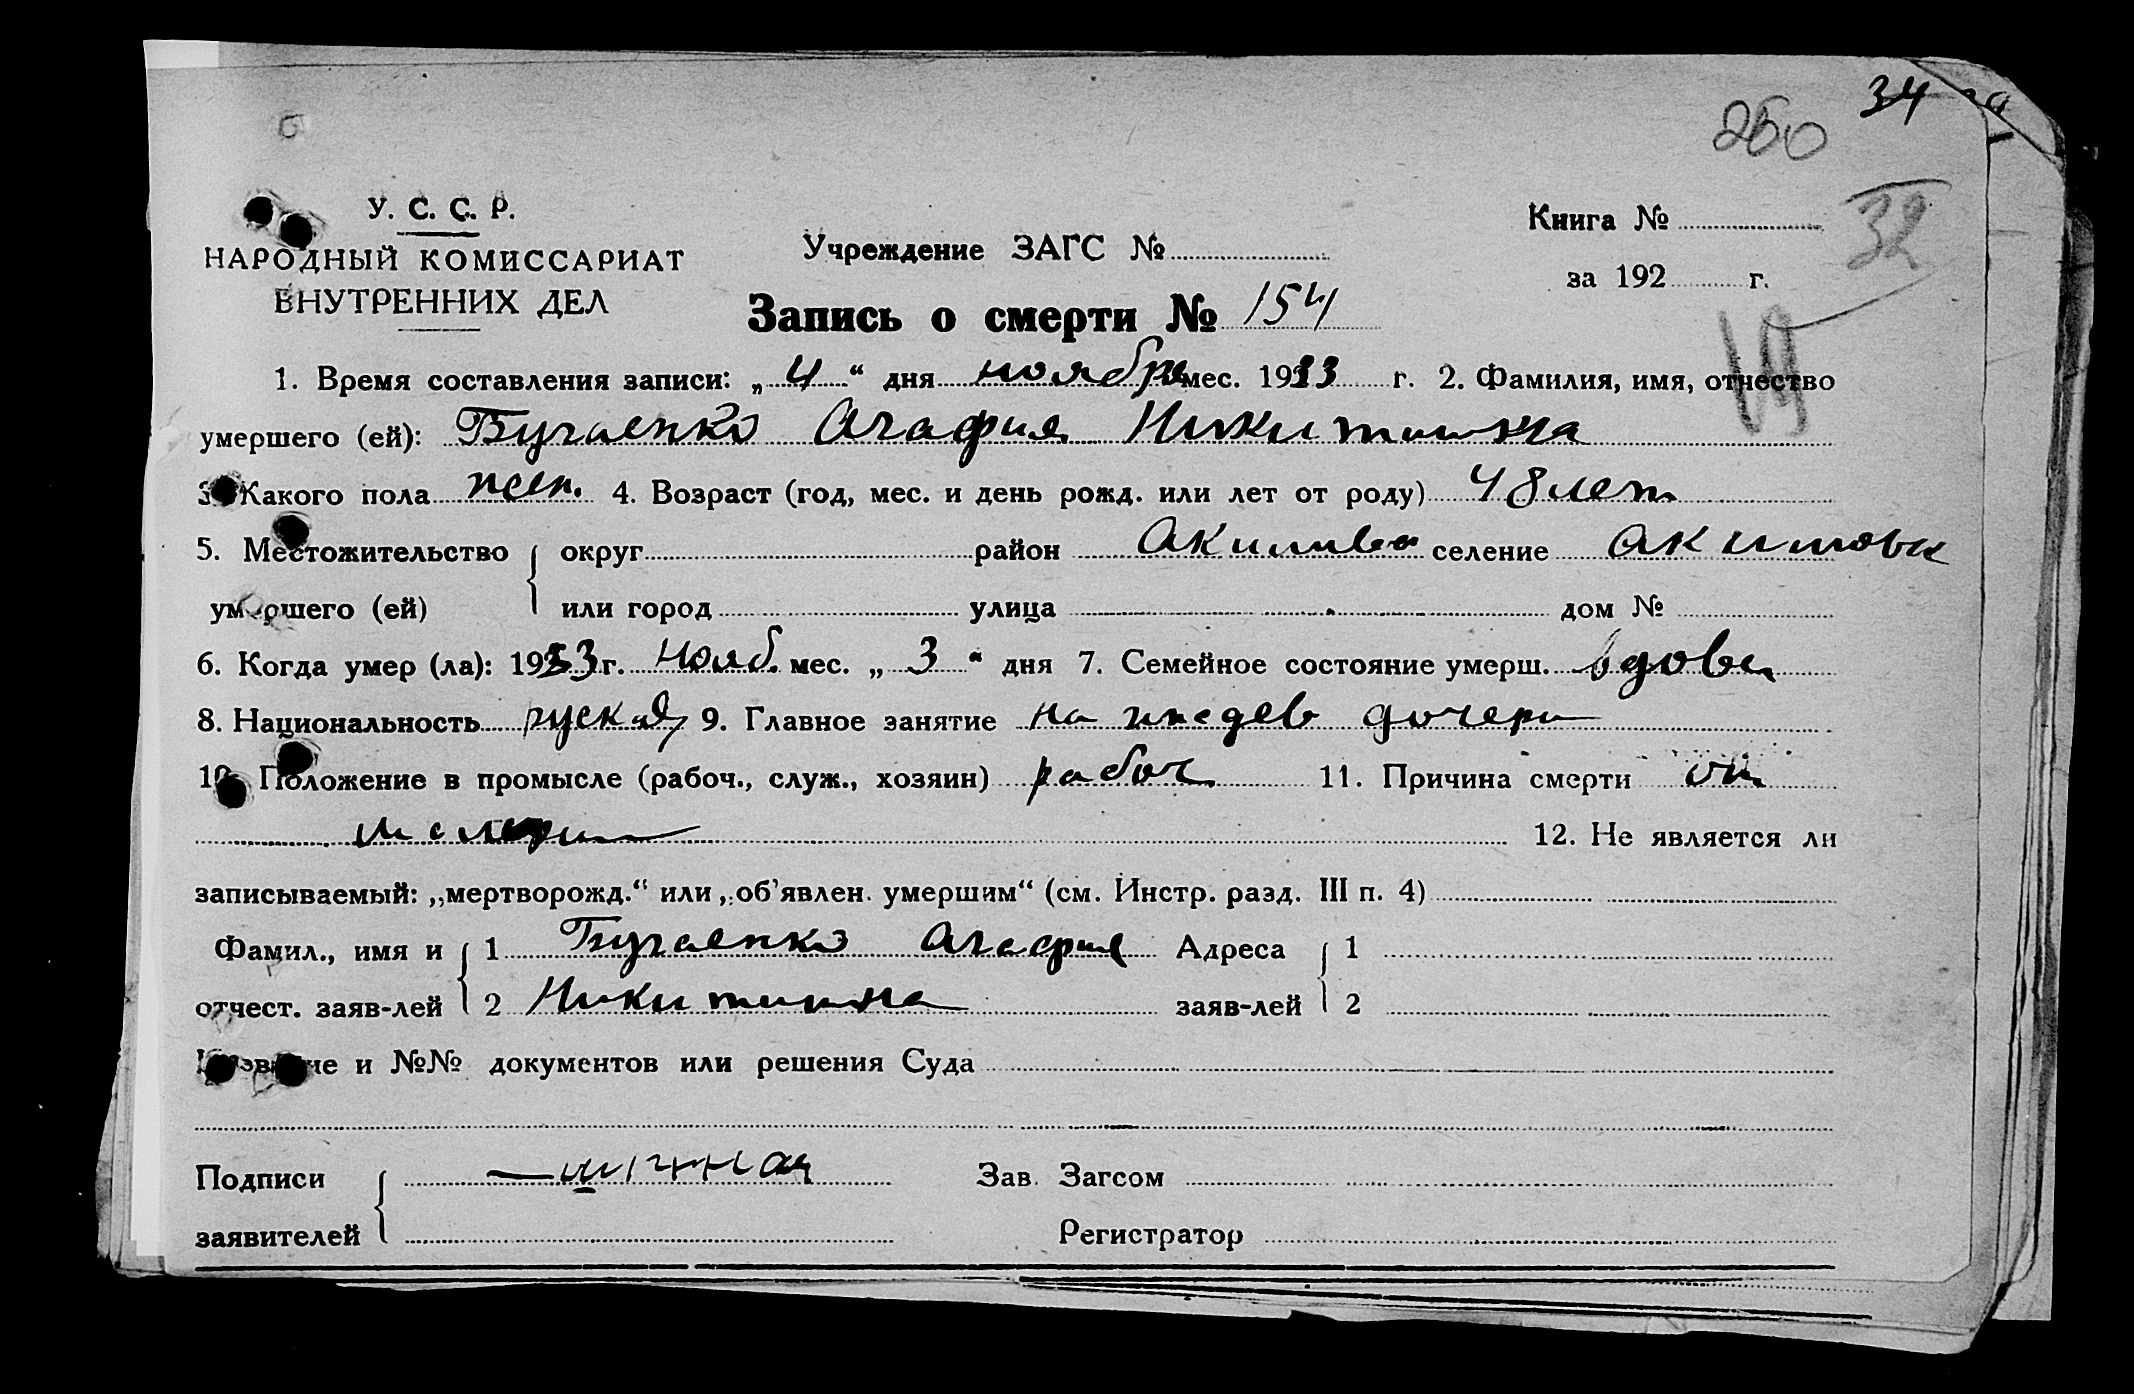 260 34
32
19
У. С. С. Р.
НАРОДНЫЙ КОМИССАРИАТ
ВНУТРЕННИХ ДЕЛ
Учреждение ЗАГС №
Книга №
за 192 г.
Запись о смерти № 154
1. Время составления записи: „ 4 “ дня ноября мес. 1933 г. 2. Фамилия, имя, отчество
умершего (ей): Бугаенко Агафия Никитишна
3. Какого пола жен. 4. Возраст (год, мес. и день рожд. или лет от роду) 48 лет
5. Местожительство округ район Акимовс селение Акимовк
умершего (ей) или город улица дом №
6. Когда умер (ла): 1933 г. нояб. мес. „ 3 “ дня 7. Семейное состояние умерш. вдова
8. Национальность руская 9. Главное занятие на иждев дочери
10. Положение в промысле (рабоч., служ., хозяин) рабоч. 11. Причина смерти от
12. Не является ли
записываемый: „мертворожд.“ или „об’явлен. умершим“ (см. Инстр. разд. III п. 4)
Фамил., имя и 1 Бугаенко Агафия Адреса 1
отчест. заяв-лей 2 Никитишна заяв-лей 2
Название и №№ документов или решения Суда
Подписи Зав. Загсом
заявителей Регистратор